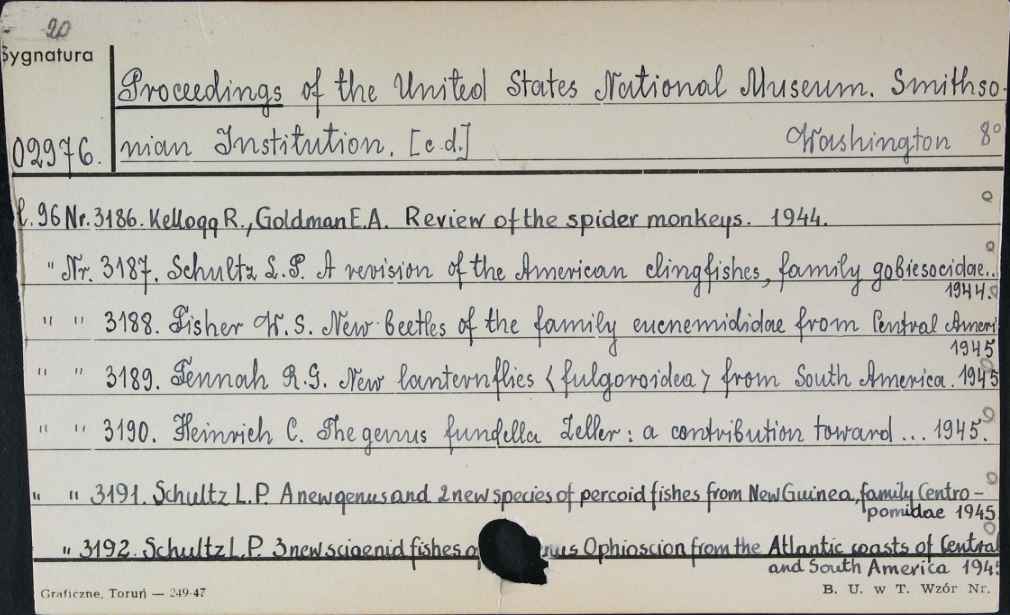 20
Sygnatura
Proceedings of the United States National Museum. Smithso-
02976. nian Institution. [c.d.] Washington 8°
t. 96 Nr. 3186. Kellogg R., Goldman E.A. Review of the spider monkeys. 1944.
" Nr. 3187. Schultz L.P. A revision of the American clingfishes, family gobiesocidae..
1944.
" " 3188. Fisher W. S. New beetles of the family eucnemididae from Central Ameri
1945
" " 3189. Fennah R.G. New lanternflies <fulgoroidea> from South America. 1945
" " 3190. Heinrich C. The genus fundella Zeller: a contribution toward ... 1945.
" " 3191. Schultz L.P. A new genus and 2 new species of percoid fishes from New Guinea, family Centro-
pomidae 1945
" 3192. Schultz L.P. 3 new sciaenid fishes o nus Ophioscion from the Atlantic coasts of Central
and South America 194
Graficzne, Toruń — 249-47 B. U. w T. Wzór Nr.